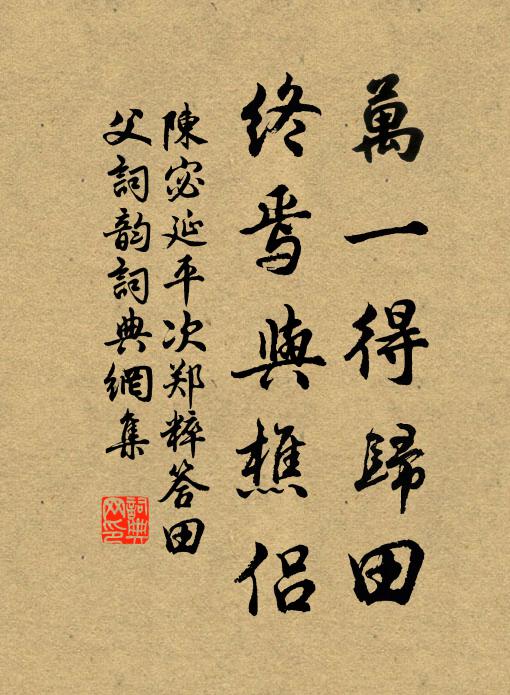 萬一得歸田
終焉與樵侶
陳宓延平次郑粹答田
父詞韵詞典網集
詞典网印